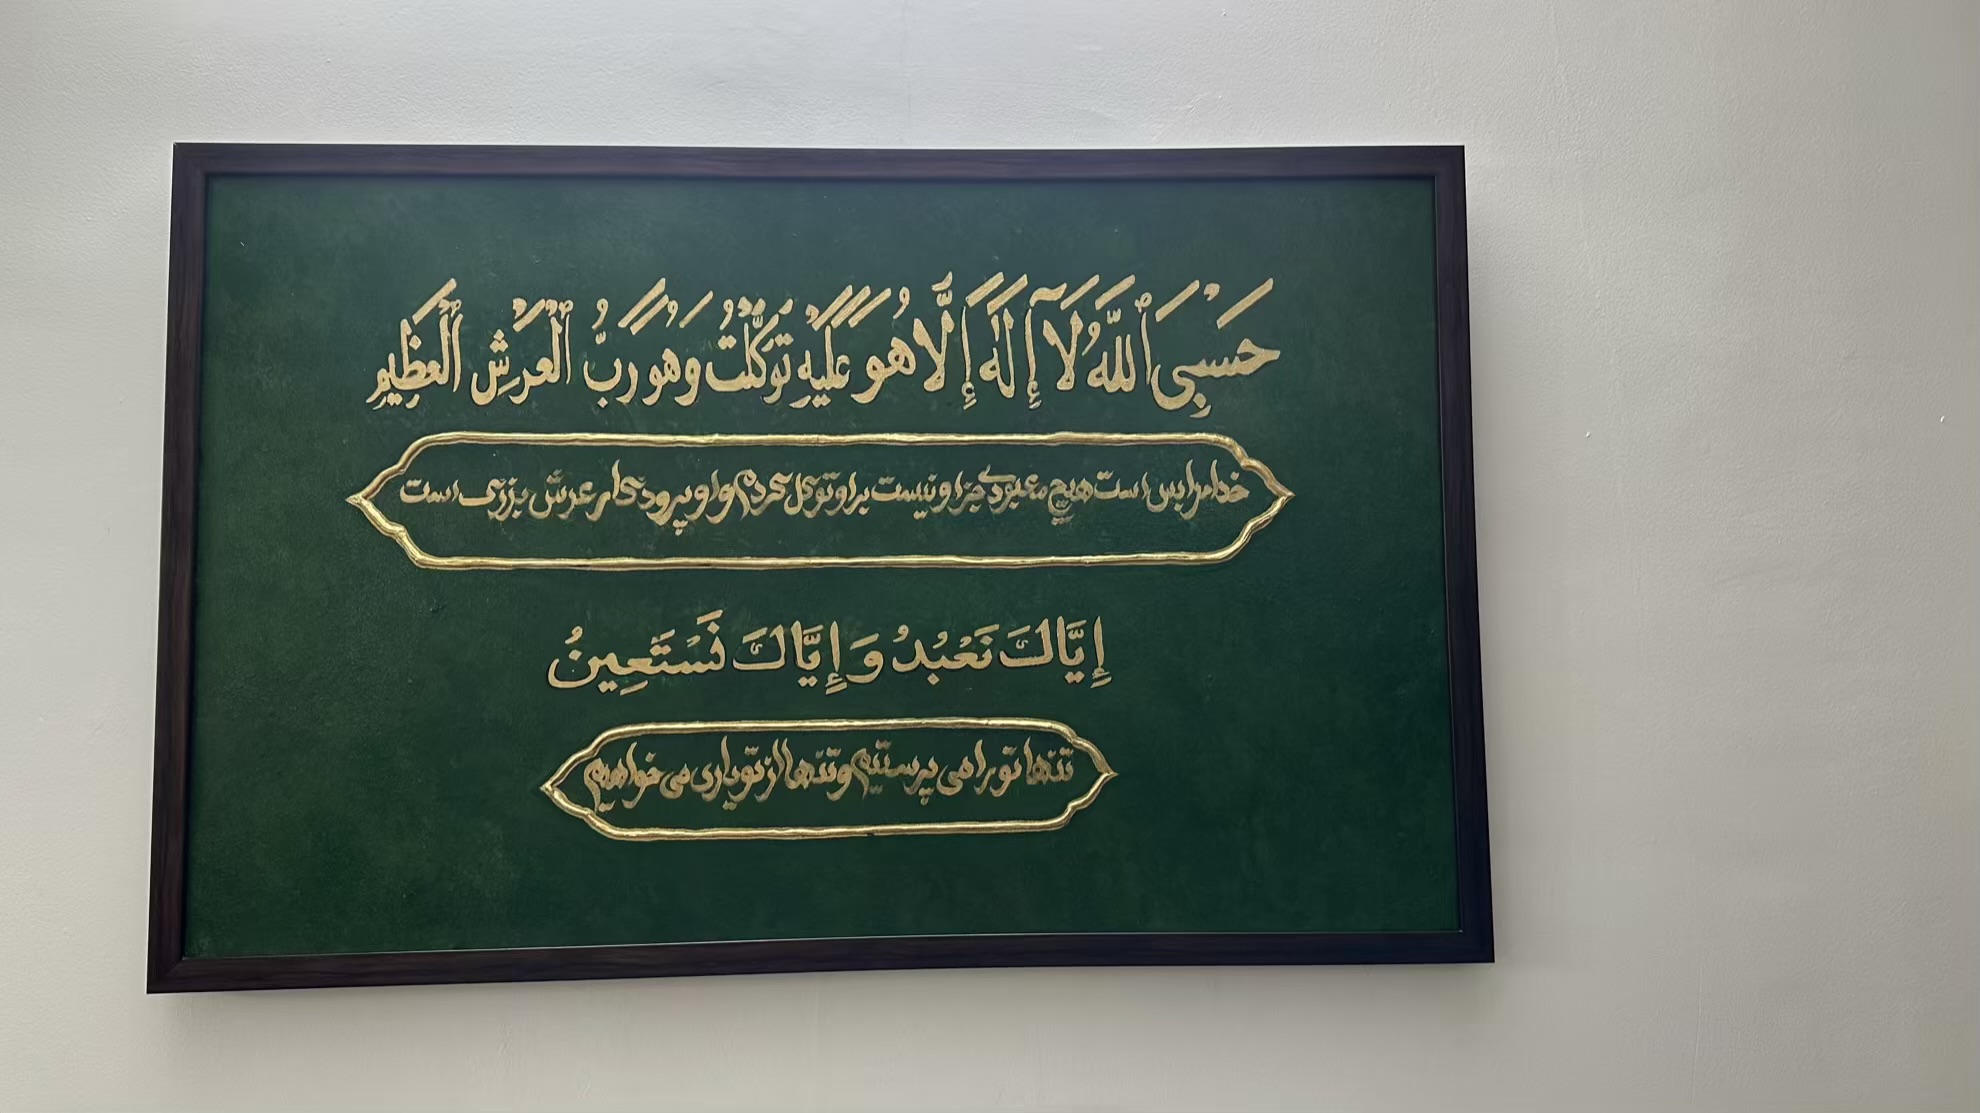 حَسْبِيَ ٱللَّهُ لَآ إِلَٰهَ إِلَّا هُوَ عَلَيْهِ تَوَكَّلْتُ وَهُوَ رَبُّ ٱلْعَرْشِ ٱلْعَظِيمِ
خدا مرا بس است هیچ معبودی جز او نیست بر او توکل کردم و او پروردگار عرش بزرگ است
إِيَّاكَ نَعْبُدُ وَإِيَّاكَ نَسْتَعِينُ
تنها تو را می پرستیم و تنها از تو یاری می خواهیم